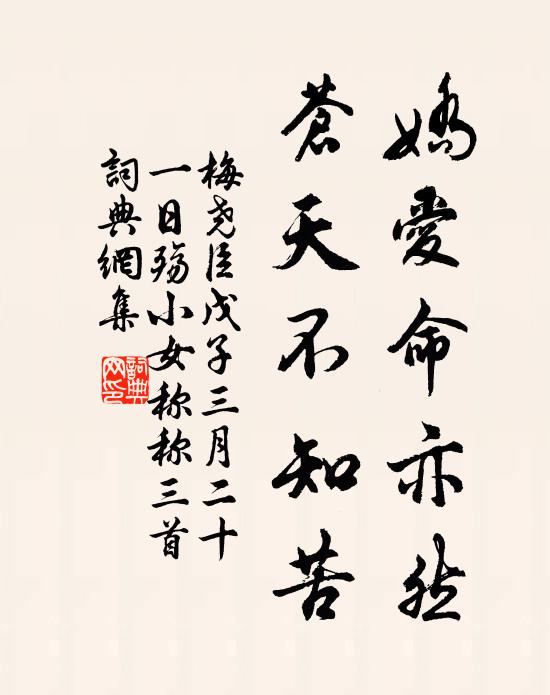 嬌愛命亦然
蒼天不知苦
梅尧臣戊子三月二十
一日殇小女称称三首
詞典網集
詞典網印